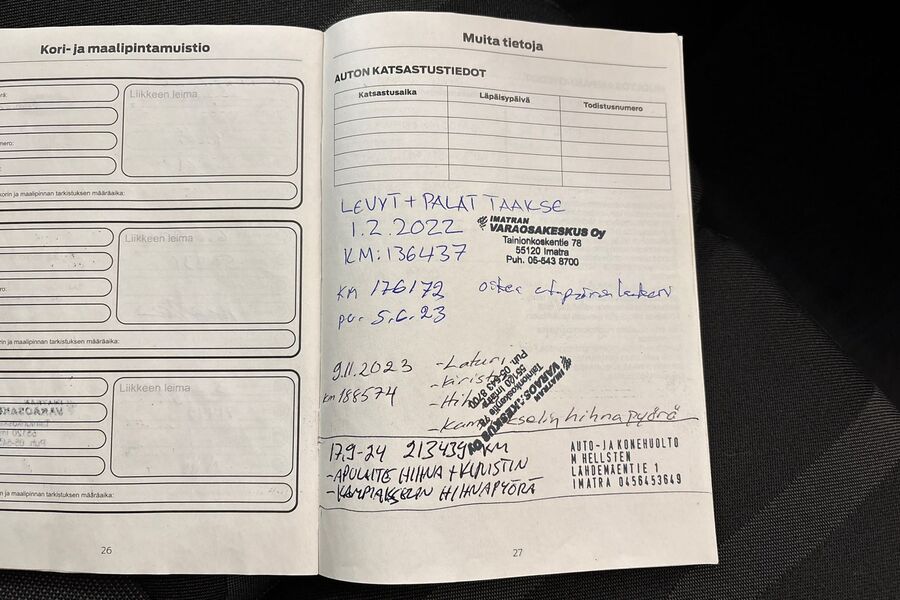 Kori- ja maalipintamuistio
Liikkeen leima
korin ja maalipinnan tarkistuksen määräaika:
Liikkeen leima
n ja maalipinnan tarkistuksen määräaika:
Liikkeen leima
in ja maalipinnan tarkistuksen määräaika:
26
Muita tietoja
AUTON KATSASTUSTIEDOT
Katsastusaika Läpäisypäivä Todistusnumero
LEVYT + PALAT TAAKSE
1.2.2022
KM: 136437
IMATRAN
VARAOSAKESKUS Oy
Tainionkoskentie 78
55120 Imatra
Puh. 05-543 8700
KM 176172 oikea etupyöränlaakeri
pv. 5.6.23
9.11.2023 - Laturi
km 188574 - Kiristin
- Hih
- Kam selin hihnapyörä
IMATRAN
VARAOSAKESKUS Oy
Tainionkoskentie 78
55120 Imatra
Puh. 05-543 8700
17.9-24 213439 KM
- APULAITE HIHNA + KIRISTIN
- KAMPIAKSELIN HIHNAPYÖRÄ
AUTO- JA KONEHUOLTO
M HELLSTEN
LAHDEMÄENTIE 1
IMATRA 0456453649
27